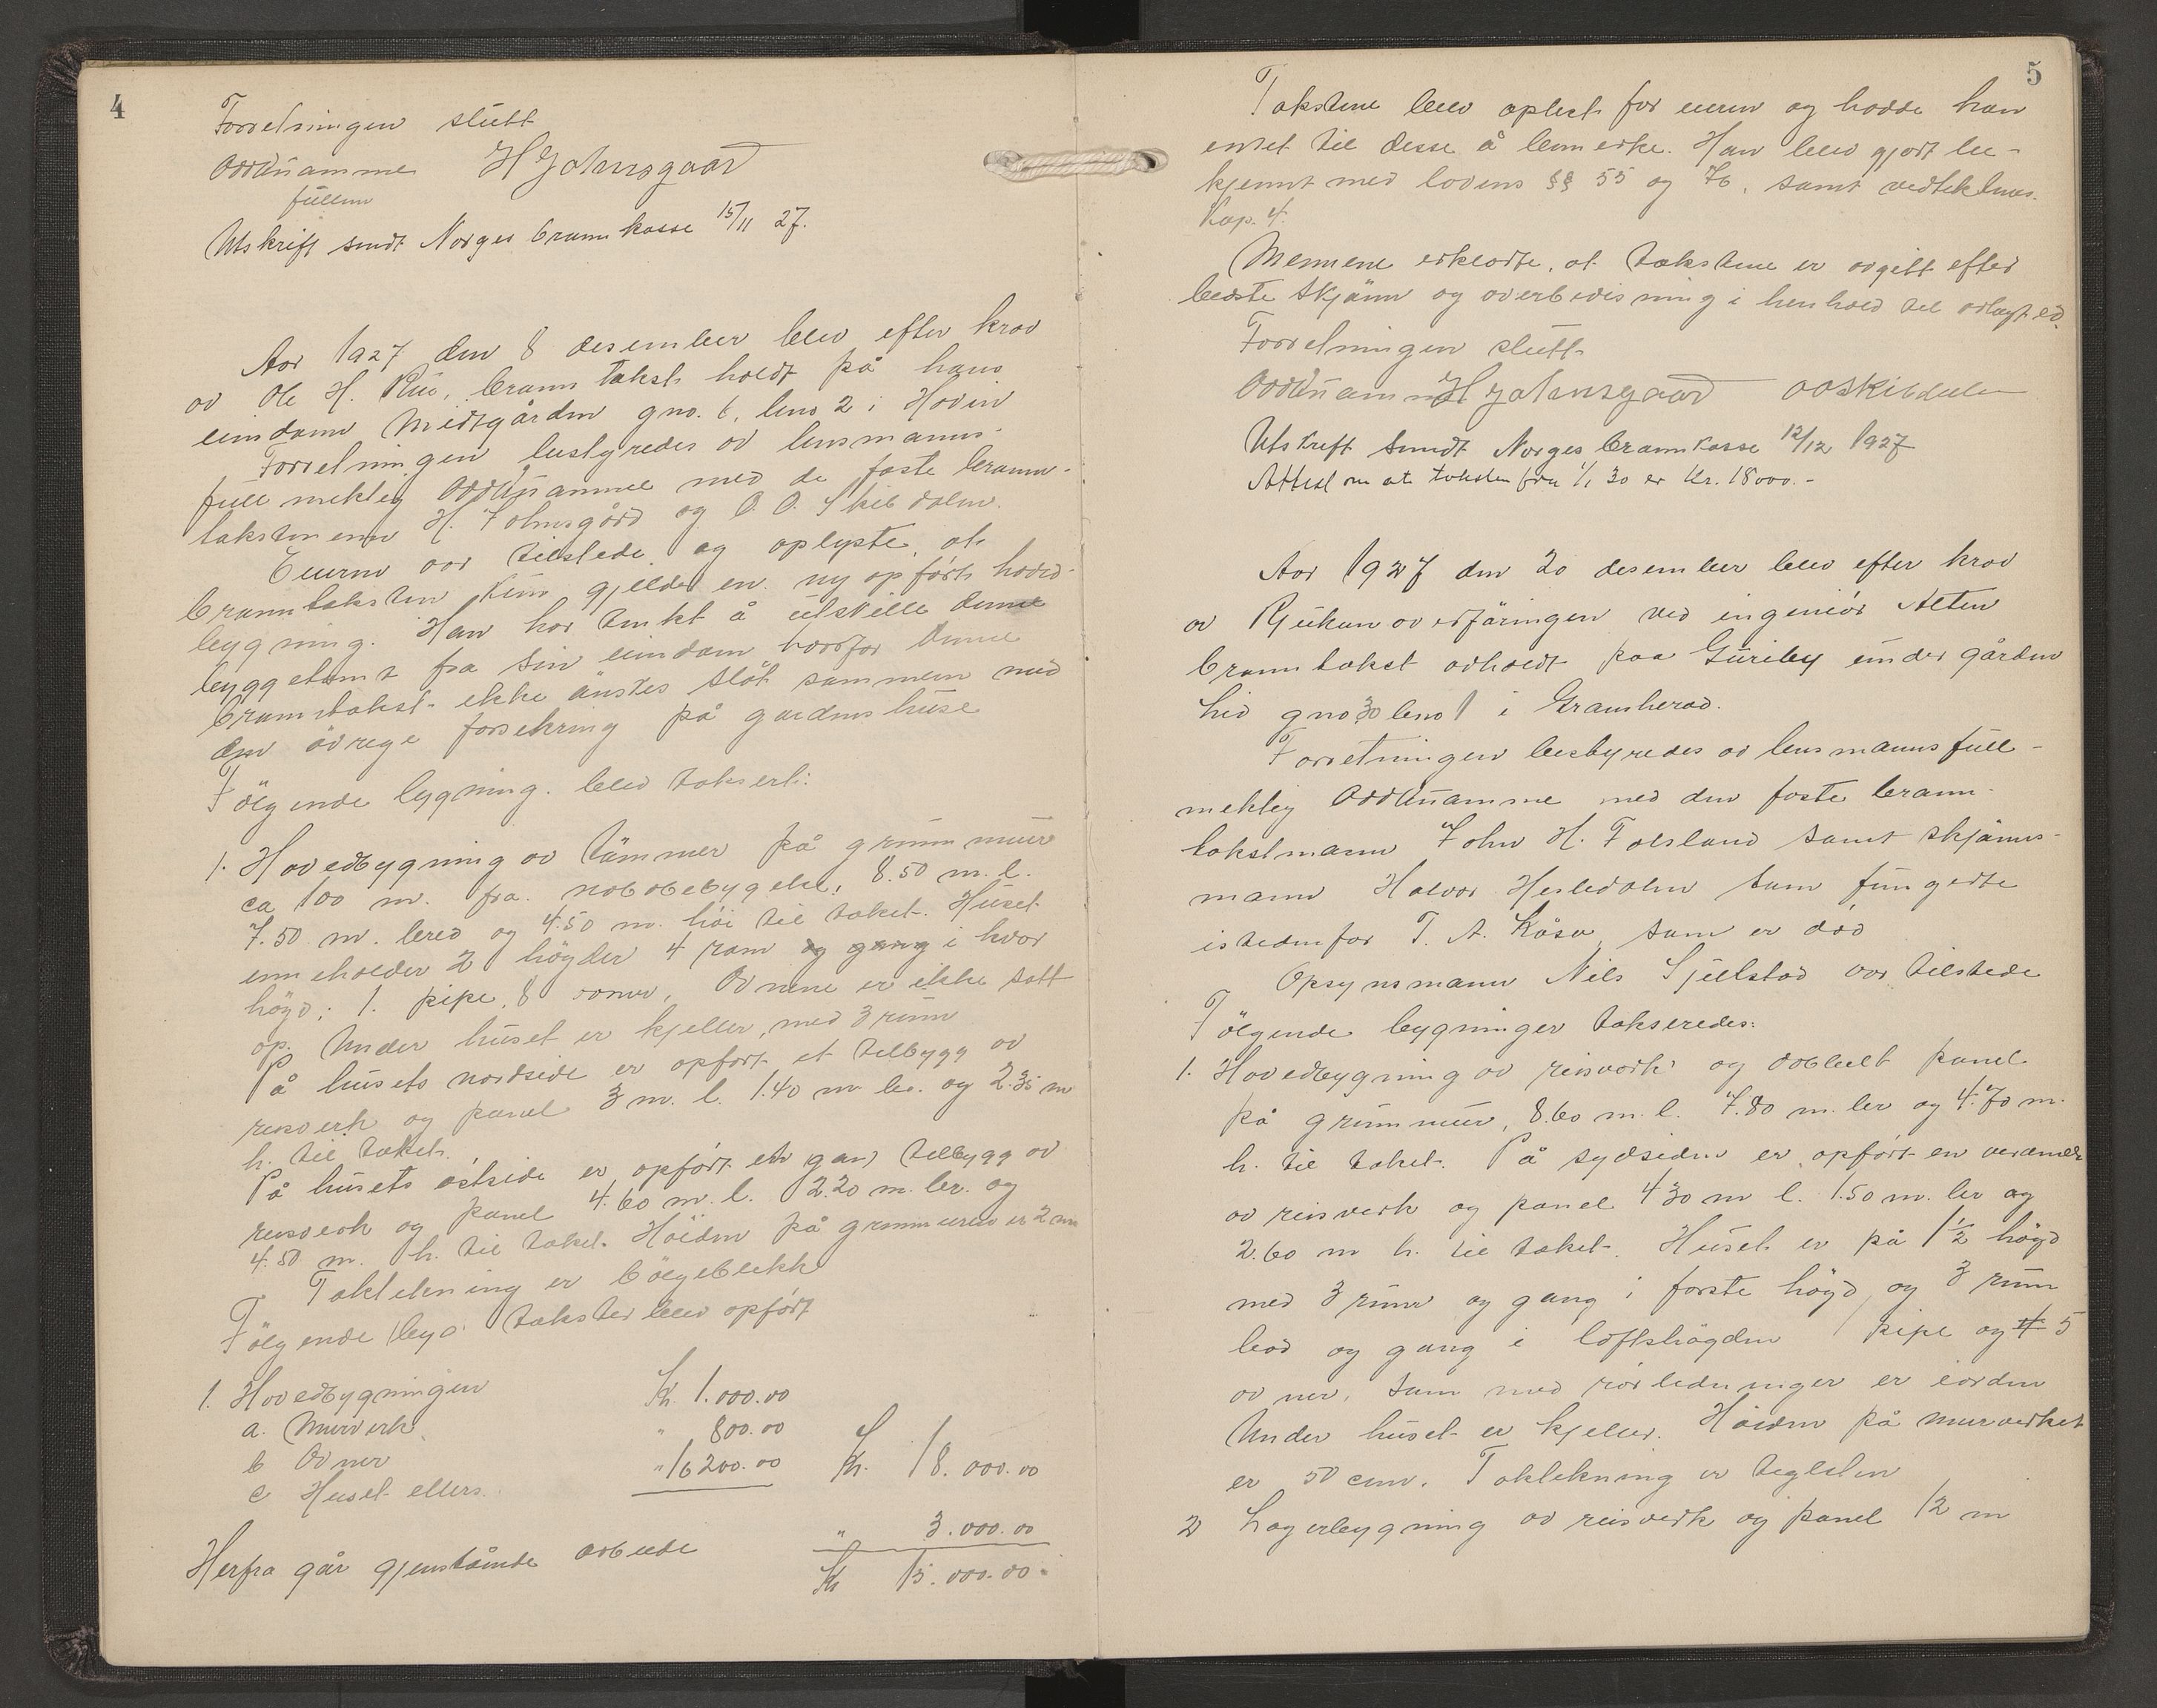 4
Forretningen slutt
Odd Unamme H Johnsgaard
fullm
Utskrift sendt Norges Brannkasse 15/11 27.
Aar 1927 den 8 desember blev efter krav
av Ole H. Rue, branntakst holdt på hans
eiendom Midtgården gno. 6, bno 2 i Hovin
Forretningen bestyredes av lensmanns-
fullmektig Odd Unamme med de faste brann-
takstmenn H. Johnsgård og O. O. Skibdalen.
Eieren var tilstede og oplyste, at
branntaksten kun gjelder en ny opført hoved-
bygning. Han har tenkt å utskille denne
byggetomt fra sin eiendom hvorfor denne
branntakst ikke ønskes slåt sammen med
den øvrige forsikring på gardens huse
Følgende bygning blev taksert:
1. Hovedbygning av tømmer på grunnmur
ca 100 m. fra nabobebygelse, 8.50 m. l.
7.50 m. bred og 4.50 m. høi til taket. Huset
inneholder 2 høgder 4 rom og gang i hver
høgd; 1. pipe, 8 ovner, Ovnene er ikke satt
op. Under huset er kjeller med 3 rum
På husets nordside er opført et tilbygg av
reisverk og panel 3 m. l. 1.40 m. br. og 2.35 m
h. til taket.
På husets østside er opført et gang tilbygg av
reisverk og panel 4.60 m. l. 2.20 m. br. og
4.50 m. h. til taket. Høiden på grunnmuren er 2 m
Taktekning er bølgeblekk
Følgende bygn. takster blev opført
1. Hovedbygningen
a. Murverk Kr. 1.000.00
b Ovner " 800.00
c Huset ellers " 16200.00 Kr. 18.000.00
Herfra går gjenstående arbeide " 3.000.00
Kr 15.000.00
5
Takstene blev oplest for eieren og hadde han
intet til disse å bemerke. Han blev gjort be-
kjennt med lovens §§ 55 og 76, samt vedtektenes
Kap. 4.
Mennene erklærte, at takstene er avgitt efter
beste skjønn og overbevisning i henhold til avlagt ed.
Forretningen slutt
Odd Unamme H Johnsgaard O O Skibdalen
Utskrift sendt Norges Brannkasse 12/12 1927
Attest om at taksten fra 1/1 30 er kr. 18000.-
Aar 1927 den 20 desember blev efter krav
av Rjukanoverføringen ved ingeniør Alten
branntakst avholdt paa Guriby under gården
Lid gno 30 bno 1 i Gransherad.
Forretningen bestyredes av lensmannsfull-
mektig Odd Unamme med den faste brann-
takstmann John H. Folsland samt skjønns-
mann Halvor Hesledalen som fungerte
istedenfor T. A. Kåsa som er død
Opsynsmann Nils Sjulstad var tilstede
Følgende bygninger takseredes:
1. Hovedbygning av reisverk og dobbelt panel
på grunnmur, 8.60 m. l. 7.80 m. br og 4.70 m.
h. til taket. På sydsiden er opført en veranda
av reisverk og panel 4 30 m l. 1.50 m. br og
2.60 m h. til taket. Huset er på 1 1/2 høgd
med 3 rum og gang i første høgd og 3 rum
bod og gang i loftshøgden 1 pipe og 4 5
ovner, som med rørledninger er i orden
Under huset er kjeller. Høiden på murverket
er 50 cm. Taktekning er teglsten
2 Lagerbygning av reisverk og panel 12 m